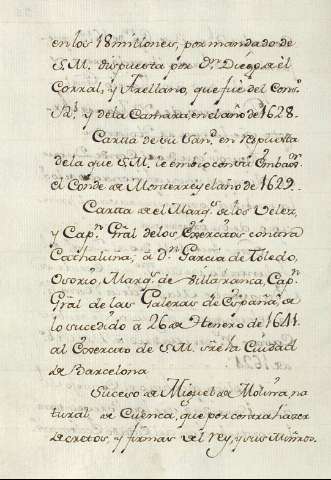 en los 18 millones, por mandado de
S. M. dispuesta por Dn. Diego de el
Corral, y Arellano, que fue del Cons.
Rl. y de la Camara, en el año de 1628.
Carta de su Sant. en respuesta
de la que S. M. le embio con su Embaor.
el Conde de Monterrey el año de 1629.
Cartta de el Marqs. de los Velez,
y Capn. Gral de los Exercitos contra
Cathaluna, a Dn. Garcia de Toledo,
Osorio, Marqs. de Villafranca, Capn.
Gral. de las Galeras de España, de
lo sucedido a 26 de Henero de 1641.
al Exercito de S. M. sre la Ciudad
de Barcelona
Suceso de Miguel de Molina, na
tural de Cuenca, que por contrahazer
decretos, y firmas del Rey, y sus Minros.